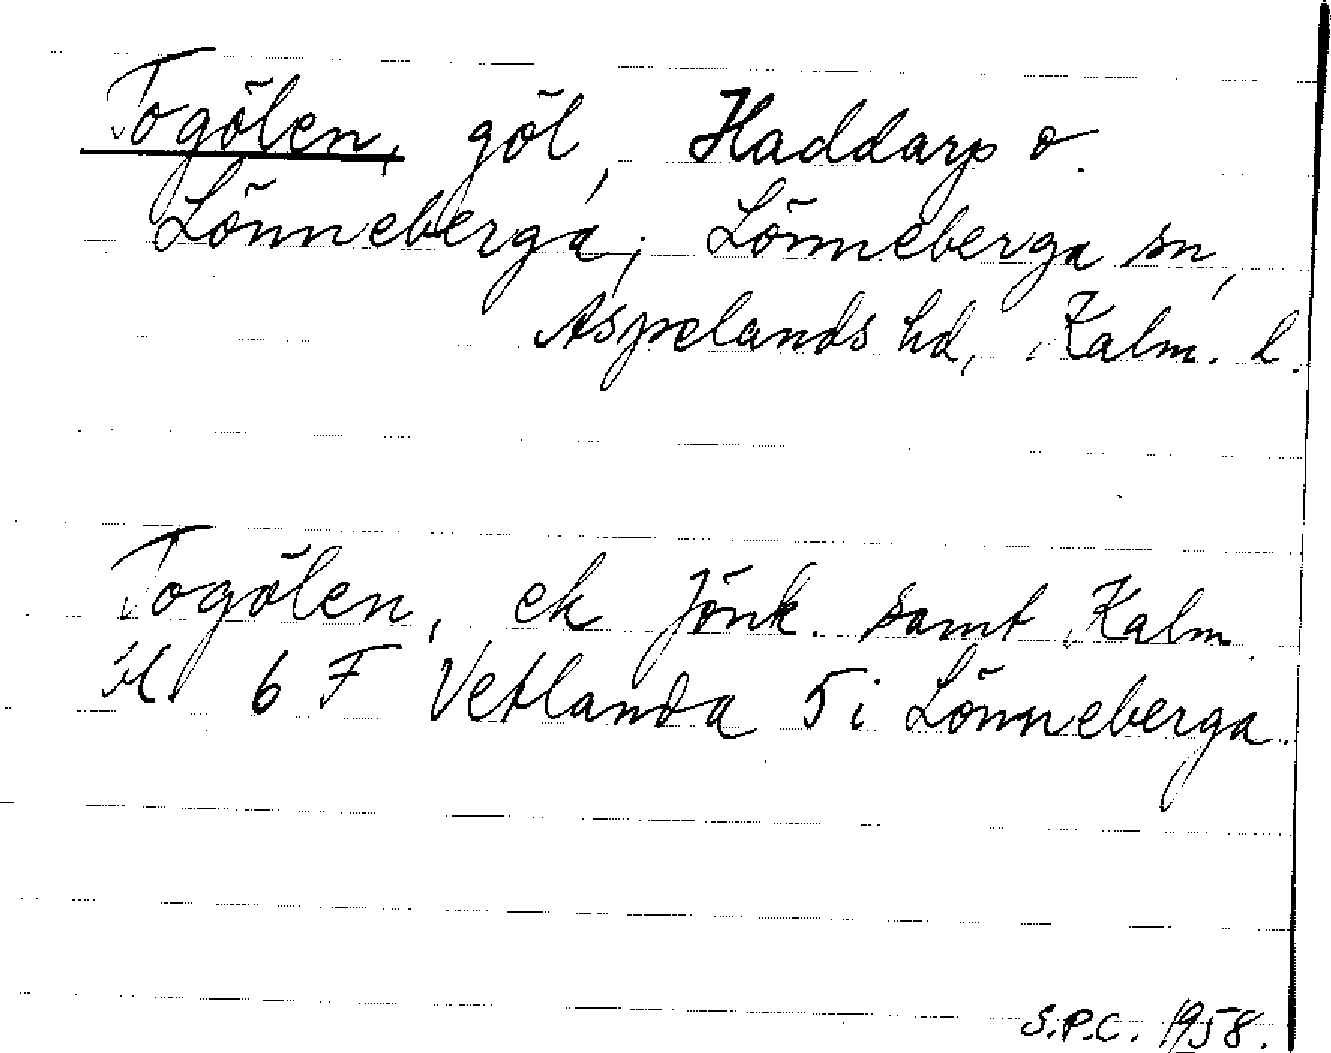 Togölen, göl, Haddarp o.
Lönneberga, Lönneberga sn,
Aspelands hd, Kalm. l.
Togölen, ek Jönk. samt Kalm.
bl. 6 F Vetlanda 5 i Lönneberga.
S.P.C. 1958.